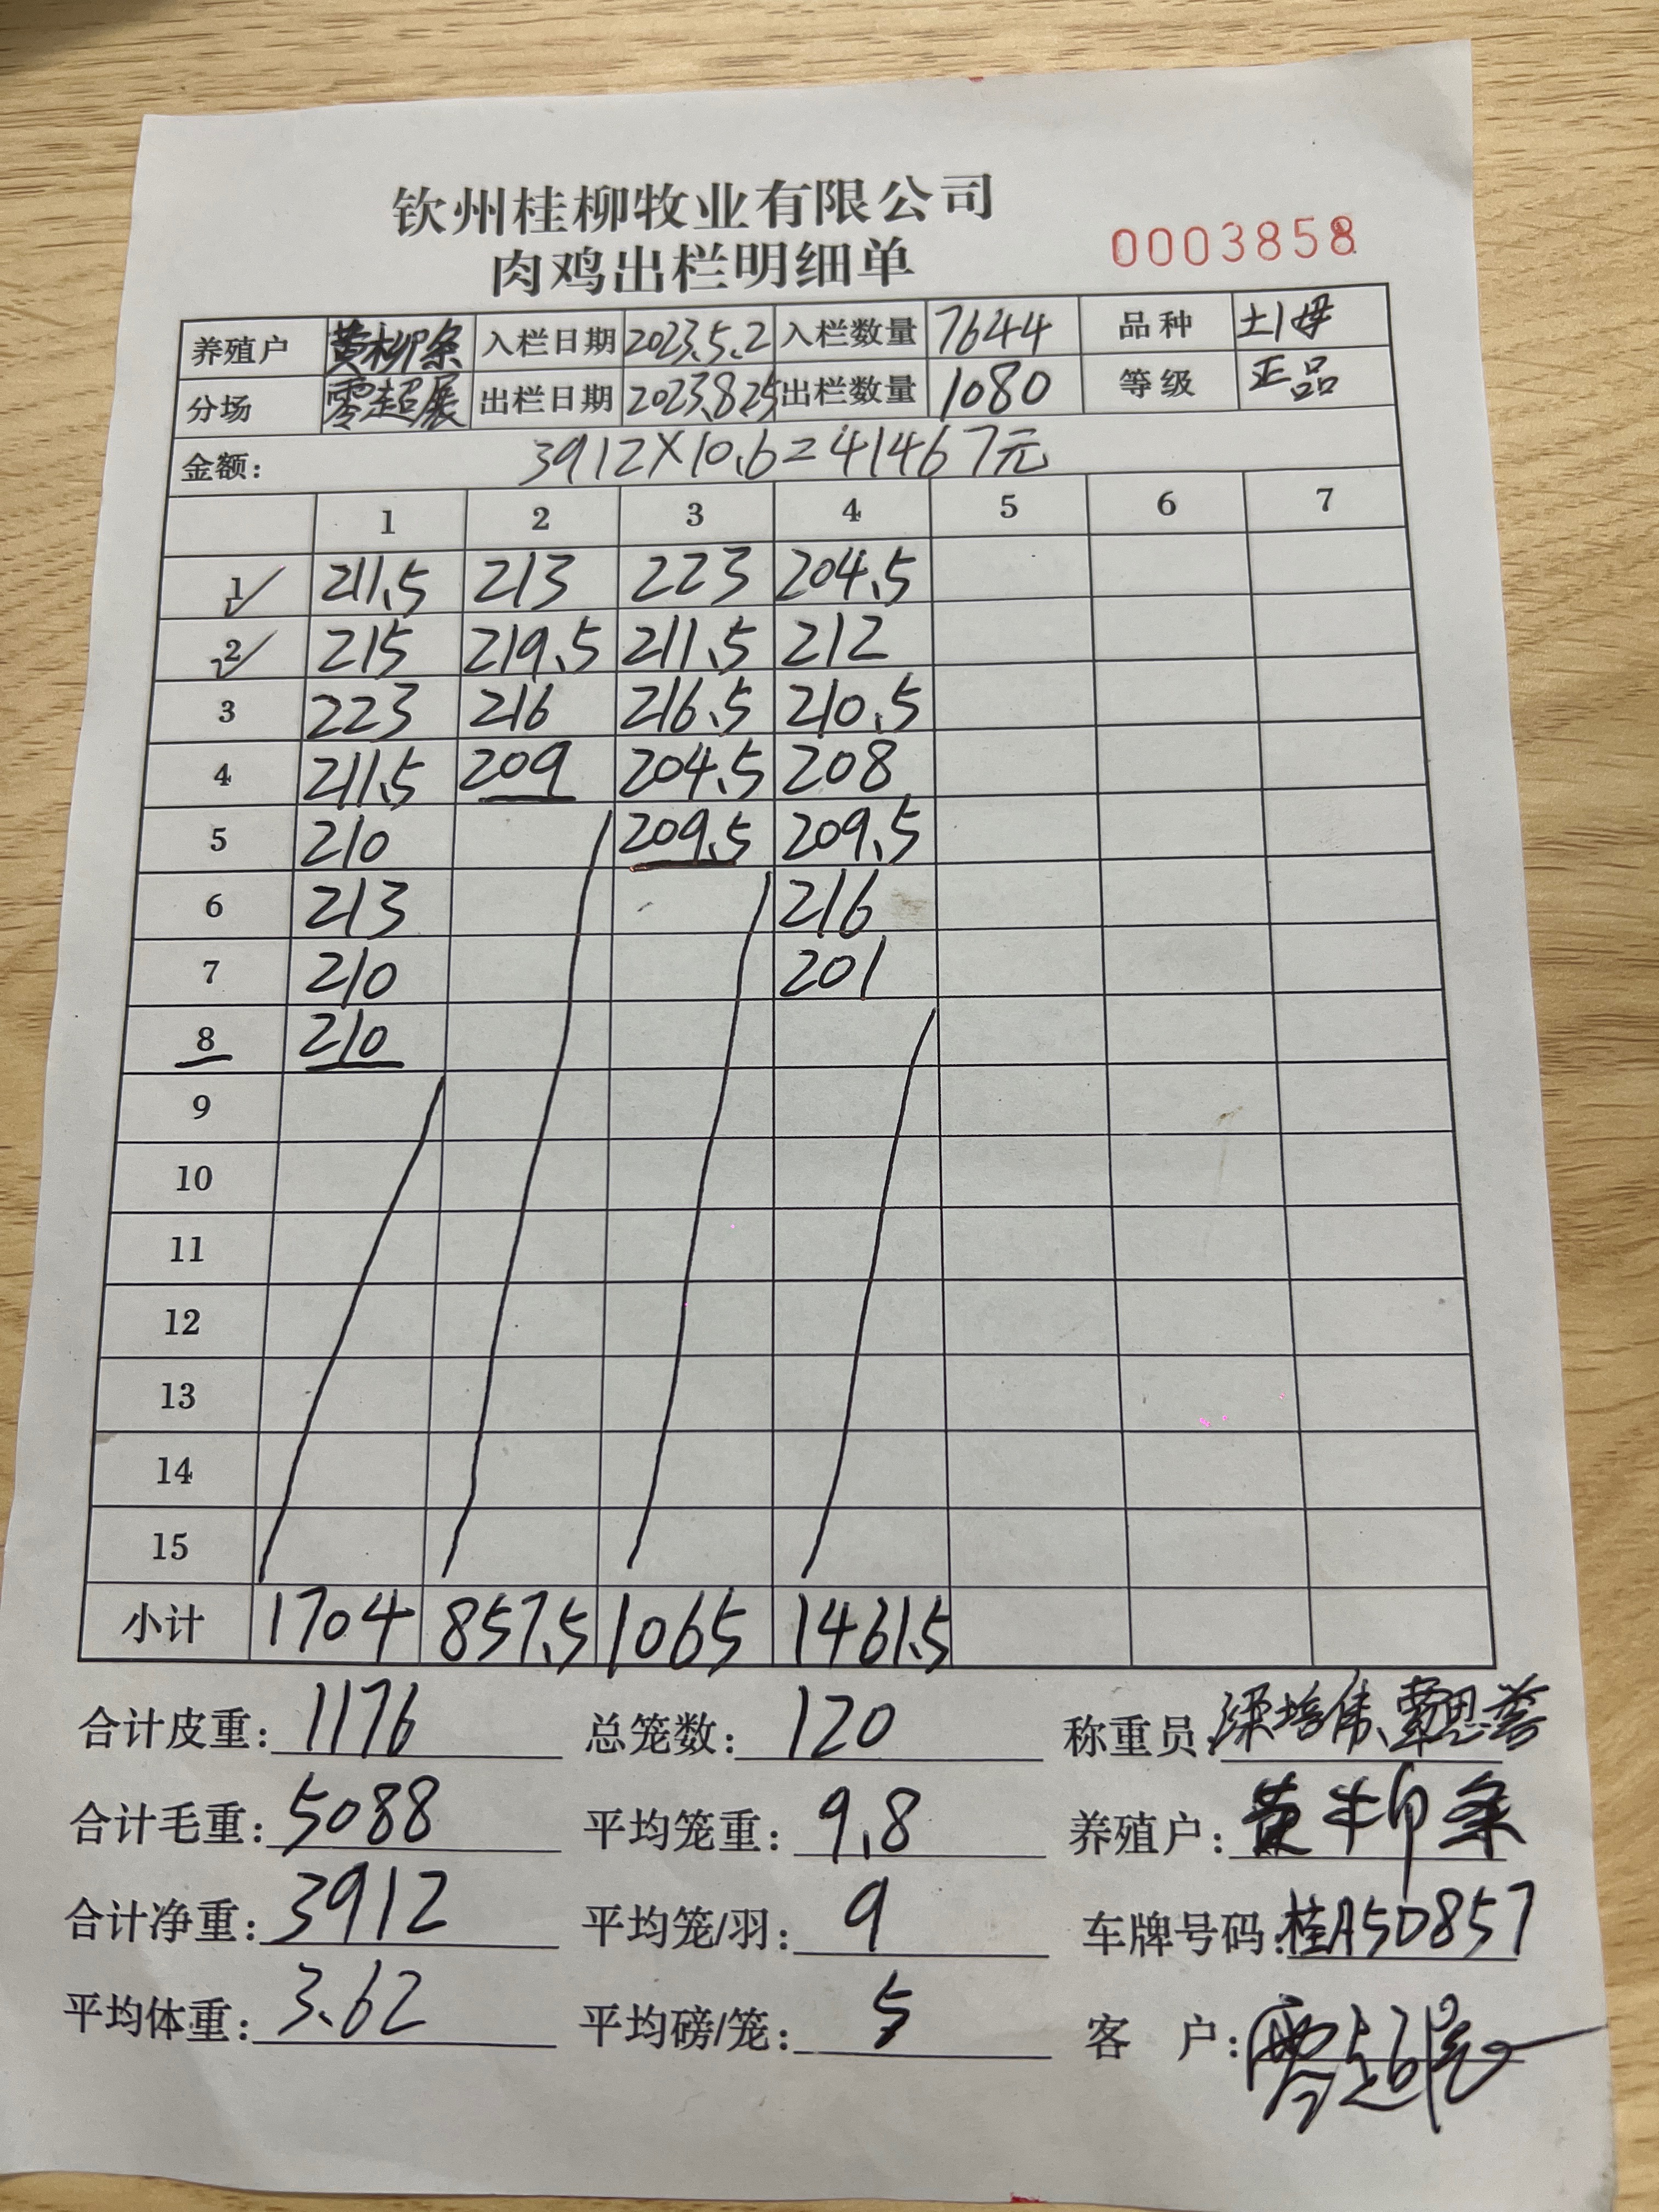 钦州桂柳牧业有限公司
肉鸡出栏明细单
0003858
养殖户 黄柳条 入栏日期 2023.5.2 入栏数量 7644 品种 土1母
分场 零超展 出栏日期 2023.8.25 出栏数量 1080 等级 正品
金额: 3912×10.6=41467元
1 2 3 4 5 6 7
1✓ 211.5 213 223 204.5
2✓ 215 219.5 211.5 212
3 223 216 216.5 210.5
4 211.5 209 204.5 208
5 210 209.5 209.5
6 213 216
7 210 201
8 210
9
10
11
12
13
14
15
小计 1704 857.5 1065 1461.5
合计皮重: 1176 总笼数: 120 称重员: 梁培伟、覃思荟
合计毛重: 5088 平均笼重: 9.8 养殖户: 黄柳条
合计净重: 3912 平均笼/羽: 9 车牌号码: 桂A50857
平均体重: 3.62 平均磅/笼: 5 客 户: